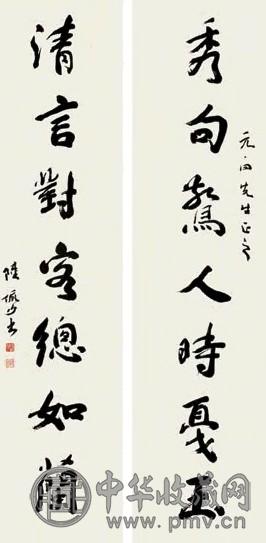 先生正
秀句驚人時戛玉
清言對客總如蘭
陸
中华收藏网
www.pmv.cn